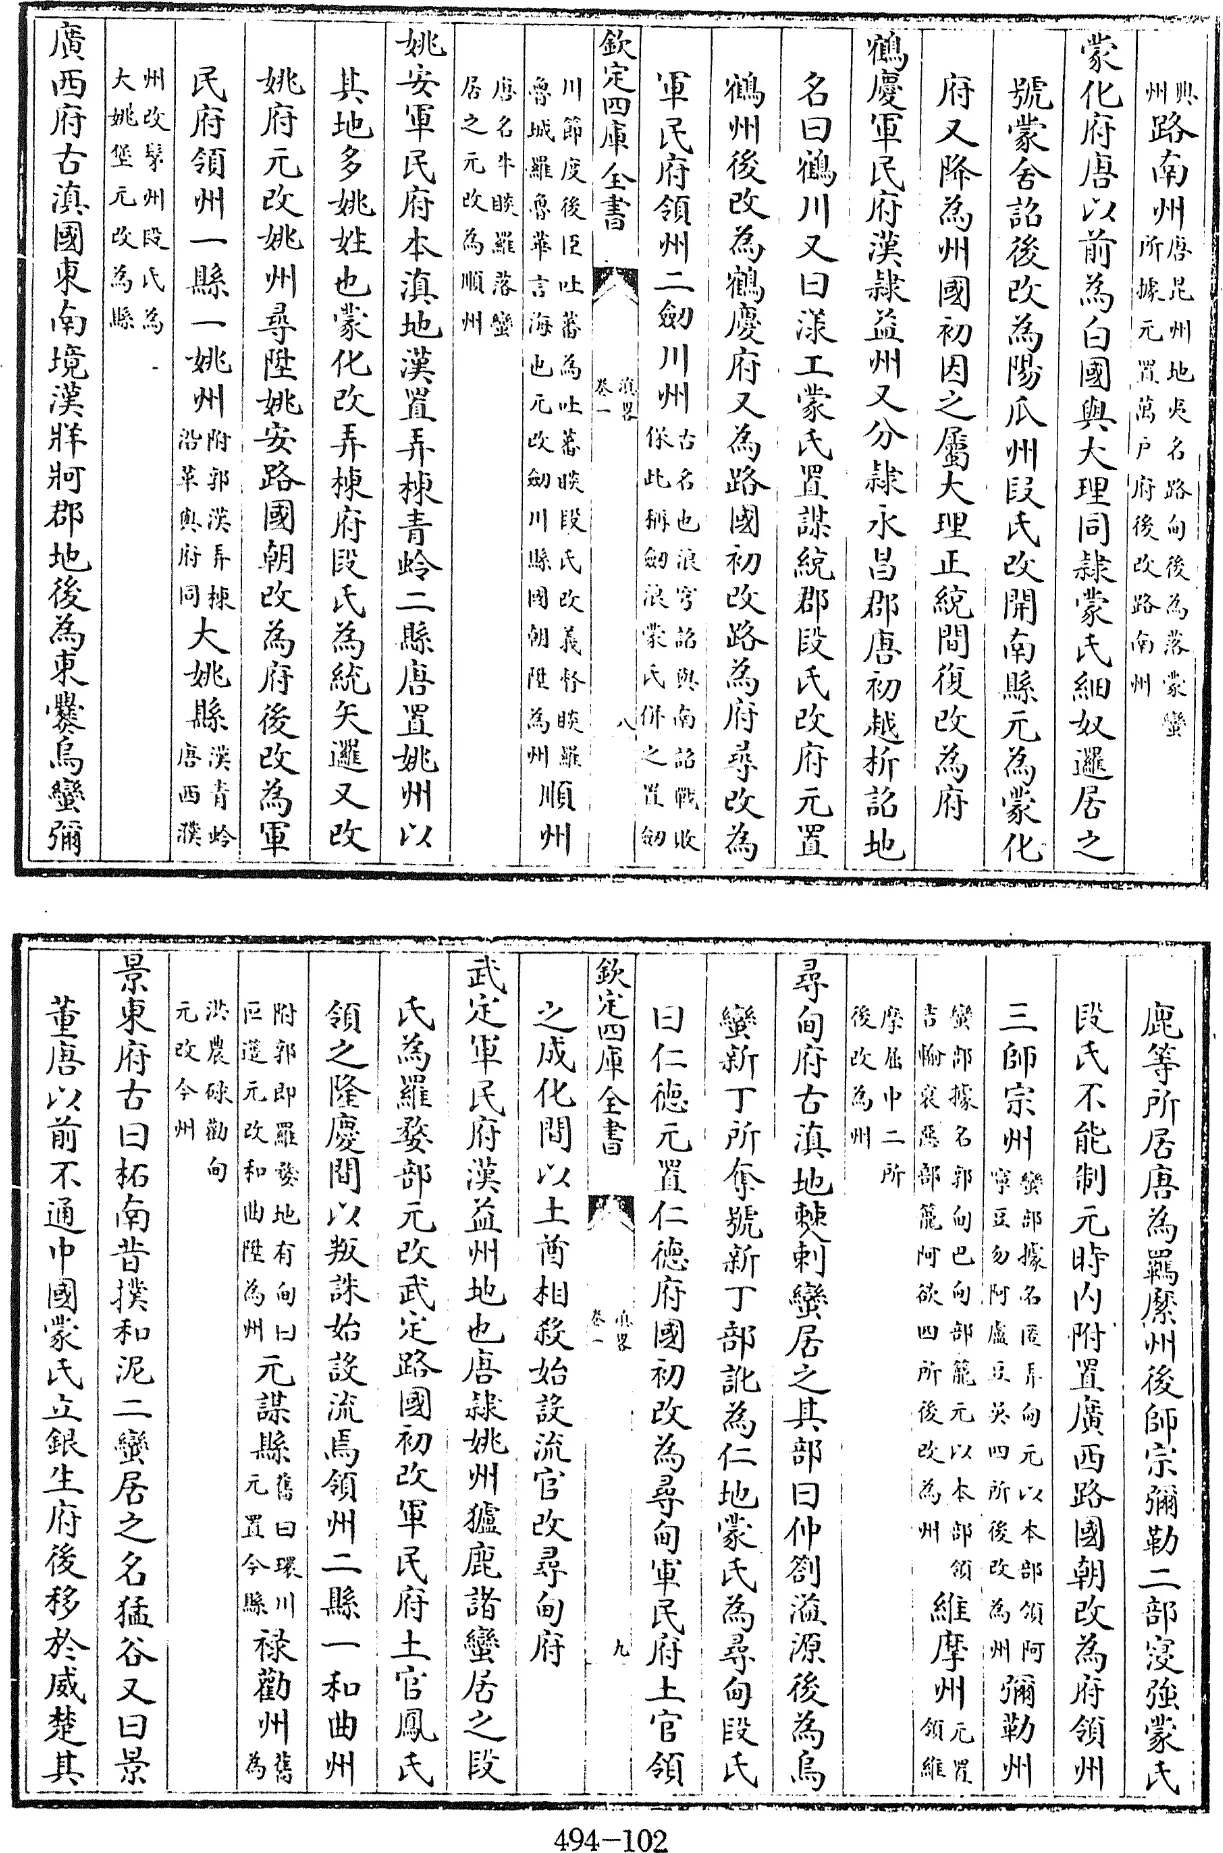 興州路南州唐昆州地夷名路甸後為落蒙蠻所據元置萬戶府後改路南州
蒙化府唐以前為白國與大理同隸蒙氏細奴邏居之
號蒙舍詔後改為陽瓜州段氏改開南縣元為蒙化
府又降為州國初因之屬大理正統間復改為府
鶴慶軍民府漢隸益州又分隸永昌郡唐初越析詔地
名曰鶴川又曰漾工蒙氏置謀統郡段氏改府元置
鶴州後改為鶴慶府又為路國初改路為府尋改為
軍民府領州二劒川州古名也浪穹詔與南詔戰敗保此稱劒浪蒙氏併之置劒
欽定四庫全書 滇畧 卷一 八
川節度後臣吐蕃為吐蕃睒段氏改義督睒羅魯城羅魯華言海也元改劒川縣國朝陞為州順州
唐名牛睒羅落蠻居之元改為順州
姚安軍民府本滇地漢置弄棟青蛉二縣唐置姚州以
其地多姚姓也蒙化改弄棟府段氏為統矢邏又改
姚府元改姚州尋陞姚安路國朝改為府後改為軍
民府領州一縣一姚州附郭漢弄棟沿革與府同大姚縣漢青蛉唐西濮
州改髳州段氏為大姚堡元改為縣
廣西府古滇國東南境漢牂牁郡地後為東爨烏蠻彌
鹿等所居唐為羈縻州後師宗彌勒二部寖強蒙氏
段氏不能制元時內附置廣西路國朝改為府領州
三師宗州蠻部據名匿弄甸元以本部領阿寧豆勿阿盧豆吳四所後改為州彌勒州
蠻部據名郭甸巴甸部籠元以本部領吉輸裒惡部籠阿欲四所後改為州維摩州元置領維
摩屈中二所後改為州
尋甸府古滇地㯖剌蠻居之其部曰仲劄溢源後為烏
蠻新丁所奪號新丁部訛為仁地蒙氏為尋甸段氏
曰仁德元置仁德府國初改為尋甸軍民府土官領
欽定四庫全書 滇畧 卷一 九
之成化間以土酋相殺始設流官改尋甸府
武定軍民府漢益州地也唐隸姚州獹鹿諸蠻居之段
氏為羅婺部元改武定路國初改軍民府土官鳳氏
領之隆慶間以叛誅始設流焉領州二縣一和曲州
附郭即羅婺地有甸曰叵簉元改和曲陞為州元謀縣舊曰環川元置今縣祿勸州舊為
洪農碌勸甸元改今州
景東府古曰柘南昔撲和泥二蠻居之名猛谷又曰景
董唐以前不通中國蒙氏立銀生府後移於威楚其
494-102